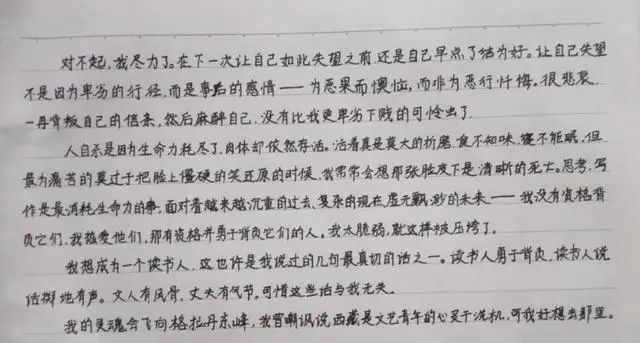 对不起,我尽力了。在下一次让自己如此失望之前,还是自己早点了结为好。让自己失望
不是因为卑劣的行径,而是事后的感情——为恶果而懊恼,而非为恶行忏悔。很悲哀,
一再背叛自己的信条,然后麻醉自己,没有比我更卑劣下贱的可怜虫了.
人自杀是因为生命力耗尽了,肉体却依然存活。活着真是莫大的折磨,食不知味,寝不能眠,但
最为痛苦的莫过于把脸上僵硬的笑还原的时候,我常常会想那张脸皮下是清晰的死亡。思考、写
作是最消耗生命力的事,面对着越来越沉重的过去、复杂的现在、虚无飘渺的未来——我没有资格背
负它们,我热爱他们,那有资格并勇于背负它们的人。我太脆弱,就这样被压垮了。
我想成为一个读书人,这也许是我说过的几句最真切的话之一。读书人勇于背负,读书人说
话掷地有声。文人有风骨,丈夫有气节,可惜这些话与我无关。
我的灵魂会飞向格拉丹东峰,我曾嘲讽说西藏是文艺青年的心灵干洗机,可我好想去那里。